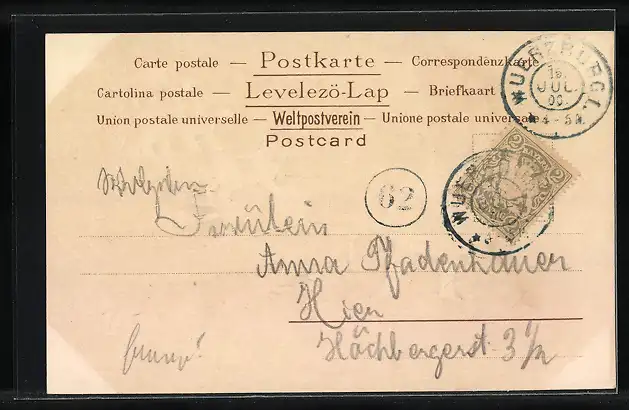 Carte postale — Postkarte — Correspondenzkarte
Cartolina postale — Levelezö-Lap — Briefkaart
Union postale universelle — Weltpostverein — Unione postale universale
Postcard
WUERZBURG 1.
15
JUL
00
4-5 N.
2 2
62
Fräulein
Anna Pfadenhauer
Hier
Höchbergerst 3